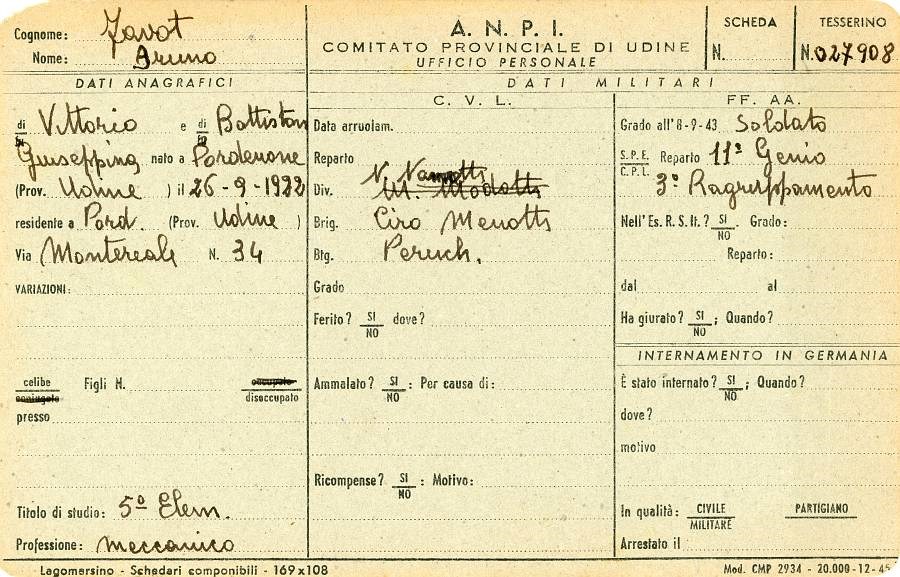 Cognome: Zavot
Nome: Bruno
A. N. P. I.
COMITATO PROVINCIALE DI UDINE
UFFICIO PERSONALE
SCHEDA
N.
TESSERINO
N. 027908
DATI ANAGRAFICI
di Vittorio e di Battiston
Giuseppina nato a Pordenone
(Prov. Udine ) il 26-9-1922
residente a Pord. (Prov. Udine )
Via Montereale N. 34
VARIAZIONI:
celibe
coniugato
Figli N.
occupato
disoccupato
presso
Titolo di studio: 5º Elem.
Professione: meccanico
DATI MILITARI
C. V. L.
Data arruolam.
Reparto
N. Nannetti
Div. M. Modotti
Brig. Ciro Menotti
Btg. Peruch.
Grado
Ferito? SI NO dove?
Ammalato? SI NO : Per causa di:
Ricompense? SI NO : Motivo:
FF. AA.
Grado all'8-9-43 Soldato
S.P.E. C.P.L. Reparto 11º Genio
3º Ragruppamento
Nell'Es. R. S. It.? SI NO Grado:
Reparto:
dal al
Ha giurato? SI NO ; Quando?
INTERNAMENTO IN GERMANIA
È stato internato? SI NO ; Quando?
dove?
motivo
In qualità: CIVILE MILITARE PARTIGIANO
Arrestato il
Lagomarsino - Schedari componibili - 169x108
Mod. CMP 2934 - 20.000-12-45